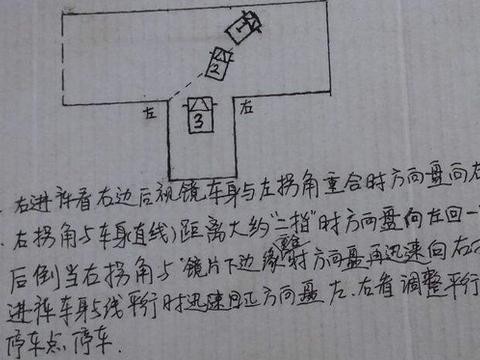 1
2
左
右
3
右进库看右边后视镜,车身与左拐角重合时方向盘向右
右拐角与车身直线)距离大约"二指"时方向盘向左回一
后倒当右拐角与"镜片下边缘"时方向盘再迅速向右
进库车身与线平行时迅速回正方向盘左、右看调整平行
停车点停车.